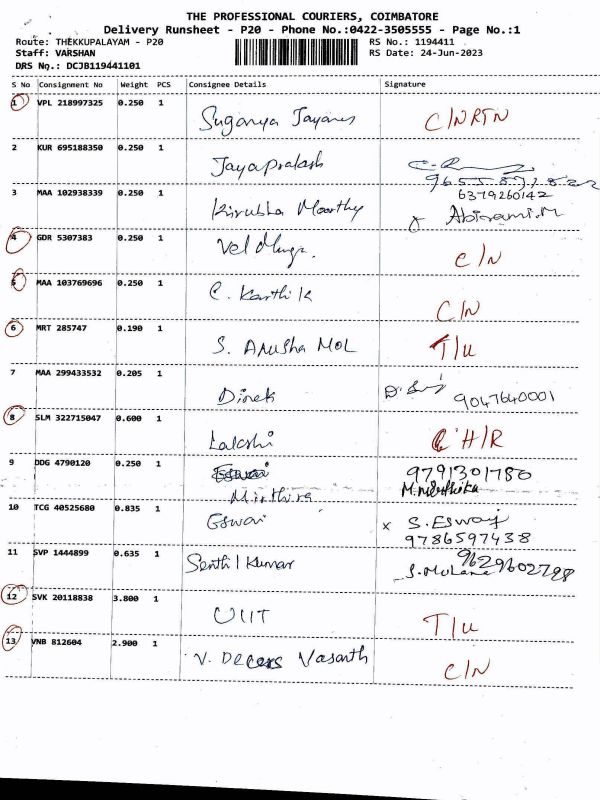 THE PROFESSIONAL COURIERS, COIMBATORE
Delivery Runsheet - P20 - Phone No.:0422-3505555 - Page No.:1
Route: THEKKUPALAYAM - P20 RS No.: 1194411
Staff: VARSHAN RS Date: 24-Jun-2023
DRS No.: DCJB119441101
S No Consignment No Weight PCS Consignee Details Signature
1 VPL 218997325 0.250 1
C/N RTN
2 KUR 695188350 0.250 1
Jayaprakash
3 MAA 102938339 0.250 1 6379260142
Kirubha Moorthy x Abirami.M
4 GDR 5307383 0.250 1
C/N
5 MAA 103769696 0.250 1
C. Karthik
C/N
6 MRT 285747 0.190 1
S. Anusha Mol T/U
7 MAA 299433532 0.205 1
Dinek 9047640001
8 SLM 322715047 0.600 1
H/R
9 DDG 4790120 0.250 1 9791301780
10 TCG 40525680 0.835 1
Eswari x S. Eswaj
9786597438
11 SVP 1444899 0.635 1 9629602798
Senthil Kumar
12 SVK 20118838 3.800 1
T/U
13 VNB 812604 2.900 1
V. Vasanth
C/N